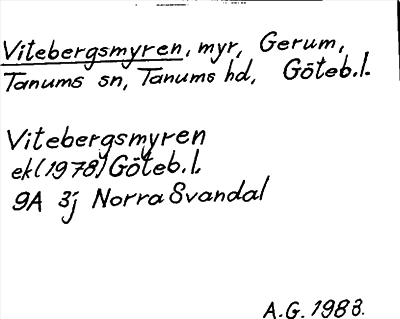 Vitebergsmyren, myr, Gerum,
Tanums sn, Tanums hd, Göteb.l.
Vitebergsmyren
ek(1978) Göteb.l.
9A 3j Norra Svandal
A.G. 1983.